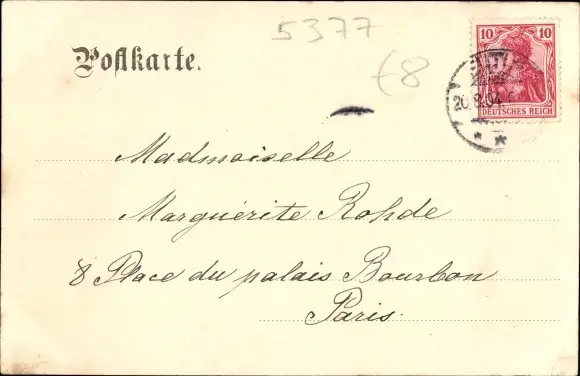 5377
Postkarte.
€8
10 10
DEUTSCHES REICH
20.8.04.
Madmoiselle
Marguérite Rohde
8 Place du palais Bourbon
Paris.